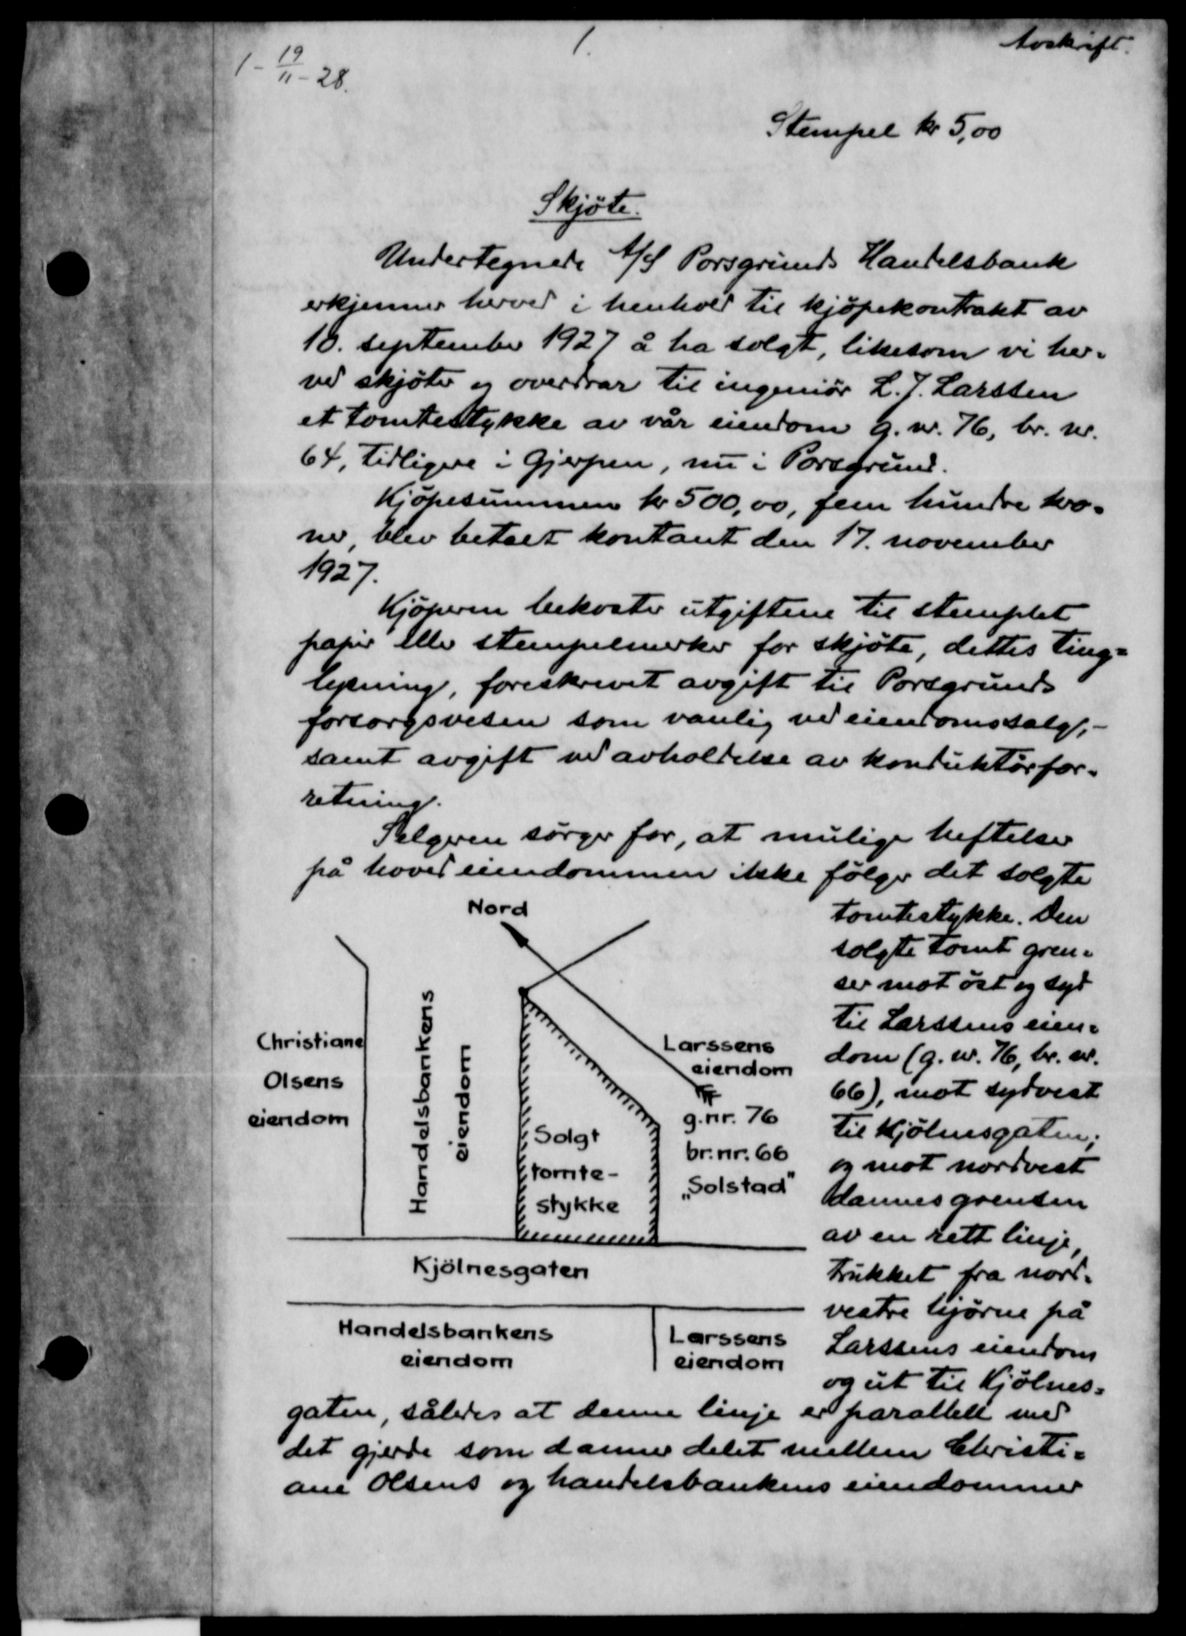 1.
Avskrift.
1 - 19/11 - 28.
Stempel kr 5,00
Skjöte.
Undertegnede A/S Porsgrunds Handelsbank
erkjenner herved i henhold til kjöpekontrakt av
10. september 1927 å ha solgt, likesom vi her-
ved skjöter og overdrar til ingeniör L. J. Larssen
et tomtestykke av vår eiendom g. nr. 76, br. nr.
64, tidligere i Gjerpen, nu i Porsgrund.
Kjöpesummen kr 500,00, fem hundre kro-
ner, blev betalt kontant den 17. november
1927.
Kjöperen bekoster utgiftene til stemplet
papir eller stempelmerker for skjöte, dettes ting=
lysning, foreskrevet avgift til Porsgrunds
forsorgsvesen som vanlig ved eiendomssalg, -
samt avgift ved avholdelse av konduktörfor-
retning.
Selgeren sörger for, at mulige heftelser
på hovedeiendommen ikke fölger det solgte
tomtestykke. Den
solgte tomt gren-
ser mot öst og syd
til Larssens eien=
dom (g. nr. 76, br. nr.
66), mot sydvest
til Kjölnesgaten;
og mot nordvest
dannes grensen
av en rett linje,
trukket fra nord-
vestre hjörne på
Larssens eiendom
og ut til Kjölnes=
gaten, således at denne linje er parallell med
det gjerde som danner delet mellem Christi=
ane Olsens og handelsbankens eiendommer
Nord
Christiane
Olsens
eiendom
Handelsbankens
eiendom
Solgt
tomte-
stykke
Larssens
eiendom
g.nr. 76
br.nr. 66
"Solstad"
Kjölnesgaten
Handelsbankens
eiendom
Larssens
eiendom